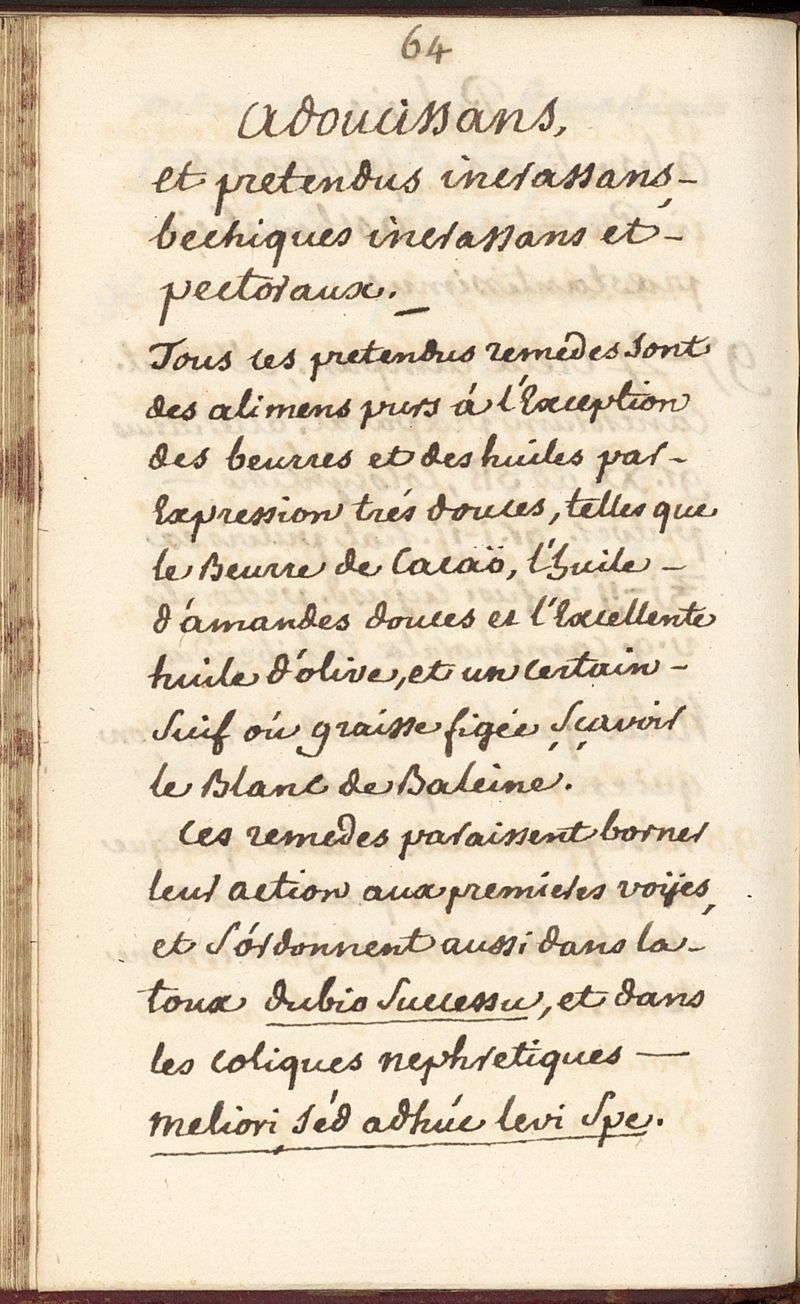 64
Adoucissans,
et pretendus incrassans-
bechiques incrassans et-
pectoraux.-
Tous ces pretendus remedes sont
des alimens purs á l'Exception
des beurres et des huiles par-
Expression trés douces, telles que
le Beurre de Cacaö, l'huile-
d'amandes douces et l'Excellente
huile d'olive, et un certain-
Suif oú graisse figée Sçavoir
le Blanc de Baleine.
Ces remedes paraissent borner
leur action aux premieres voÿes,
et S'órdonnent aussi dans la-
toux dubio Successu, et dans
les coliques nephretiques —
meliori séd adhúc levi Spe.